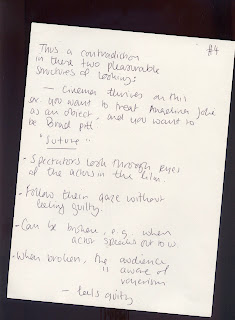 #4
Thus a contradiction
in these two pleasurable
structures of looking:
— Cinema thrives on this
ex. you want to treat Angelina Jolie
as an object, and you want to
be Brad Pitt
"Suture"
- Spectators look through eyes
of the actors in the film.
- Follow their gaze without
feeling guilty.
- Can be broken, e.g. when
actor speaks out to us.
- When broken, the audience
is aware of
voyeurism
- feels guilty